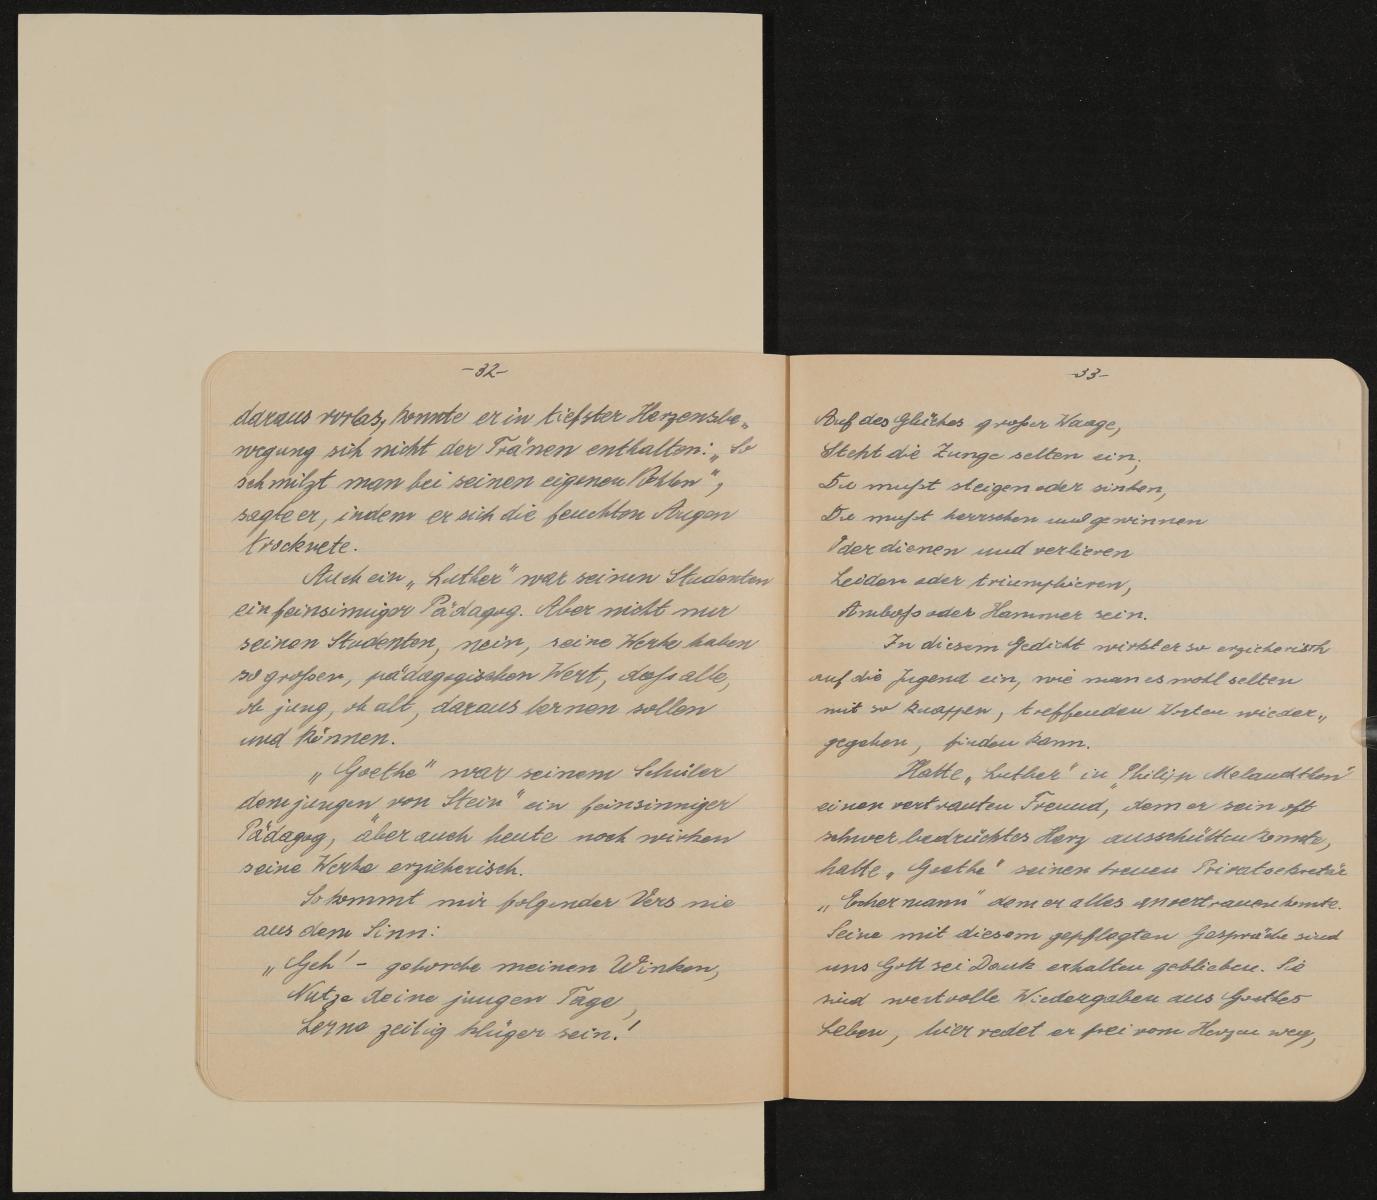 -32-
daraus vorlas, konnte er in tiefster Herzensbe„
wegung sich nicht der Tränen enthalten: „So
schmilzt man bei seinen eigenen Kohlen",
sagte er, indem er sich die feuchten Augen
trocknete.
Auch ein „Luther" war seinen Studenten
ein feinsinniger Pädagog. Aber nicht nur
seinen Studenten, nein, seine Werke haben
so großen, pädagogischen Wert, daß alle,
ob jung, ob alt, daraus lernen sollen
und können.
„Goethe" war seinem Schüler
dem jungen von Stein" ein feinsinniger
Pädagog, aber auch heute noch wirken
seine Werke erzieherisch.
So kommt mir folgender Vers nie
aus dem Sinn:
„Geh! - gehorche meinen Winken,
Nutze deine jungen Tage,
Lerne zeitig klüger sein!
-33-
Auf des Glückes großer Waage,
Steht die Zunge selten ein,
Du mußt steigen oder sinken,
Du mußt herrschen und gewinnen
Oder dienen und verlieren
Leiden oder triumphieren,
Amboß oder Hammer sein.
In diesem Gedicht wirkt er so erzieherisch
auf die Jugend ein, wie man es wohl selten
mit so knappen, treffenden Worten wieder„
gegeben, finden kann.
Hatte „Luther" in „Philipp Melanchthon"
einen vertrauten Freund, dem er sein oft
schwer bedrücktes Herz ausschütten konnte,
hatte „Goethe" seinen treuen Privatsekretär
„Eckermann" dem er alles anvertrauen konnte.
Seine mit diesem gepflegten Gespräche sind
uns Gott sei Dank erhalten geblieben. Sie
sind wertvolle Wiedergaben aus Goethes
Leben, hier redet er frei vom Herzen weg,